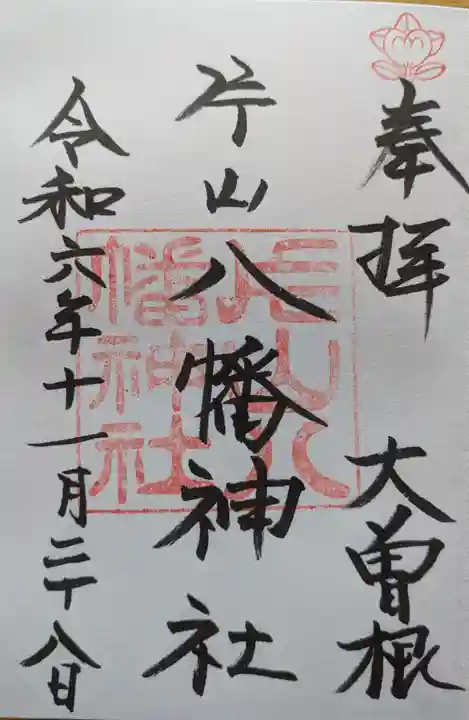 奉拝 大曽根
片山八幡神社
令和六年十一月二十八日
片山八
幡神社